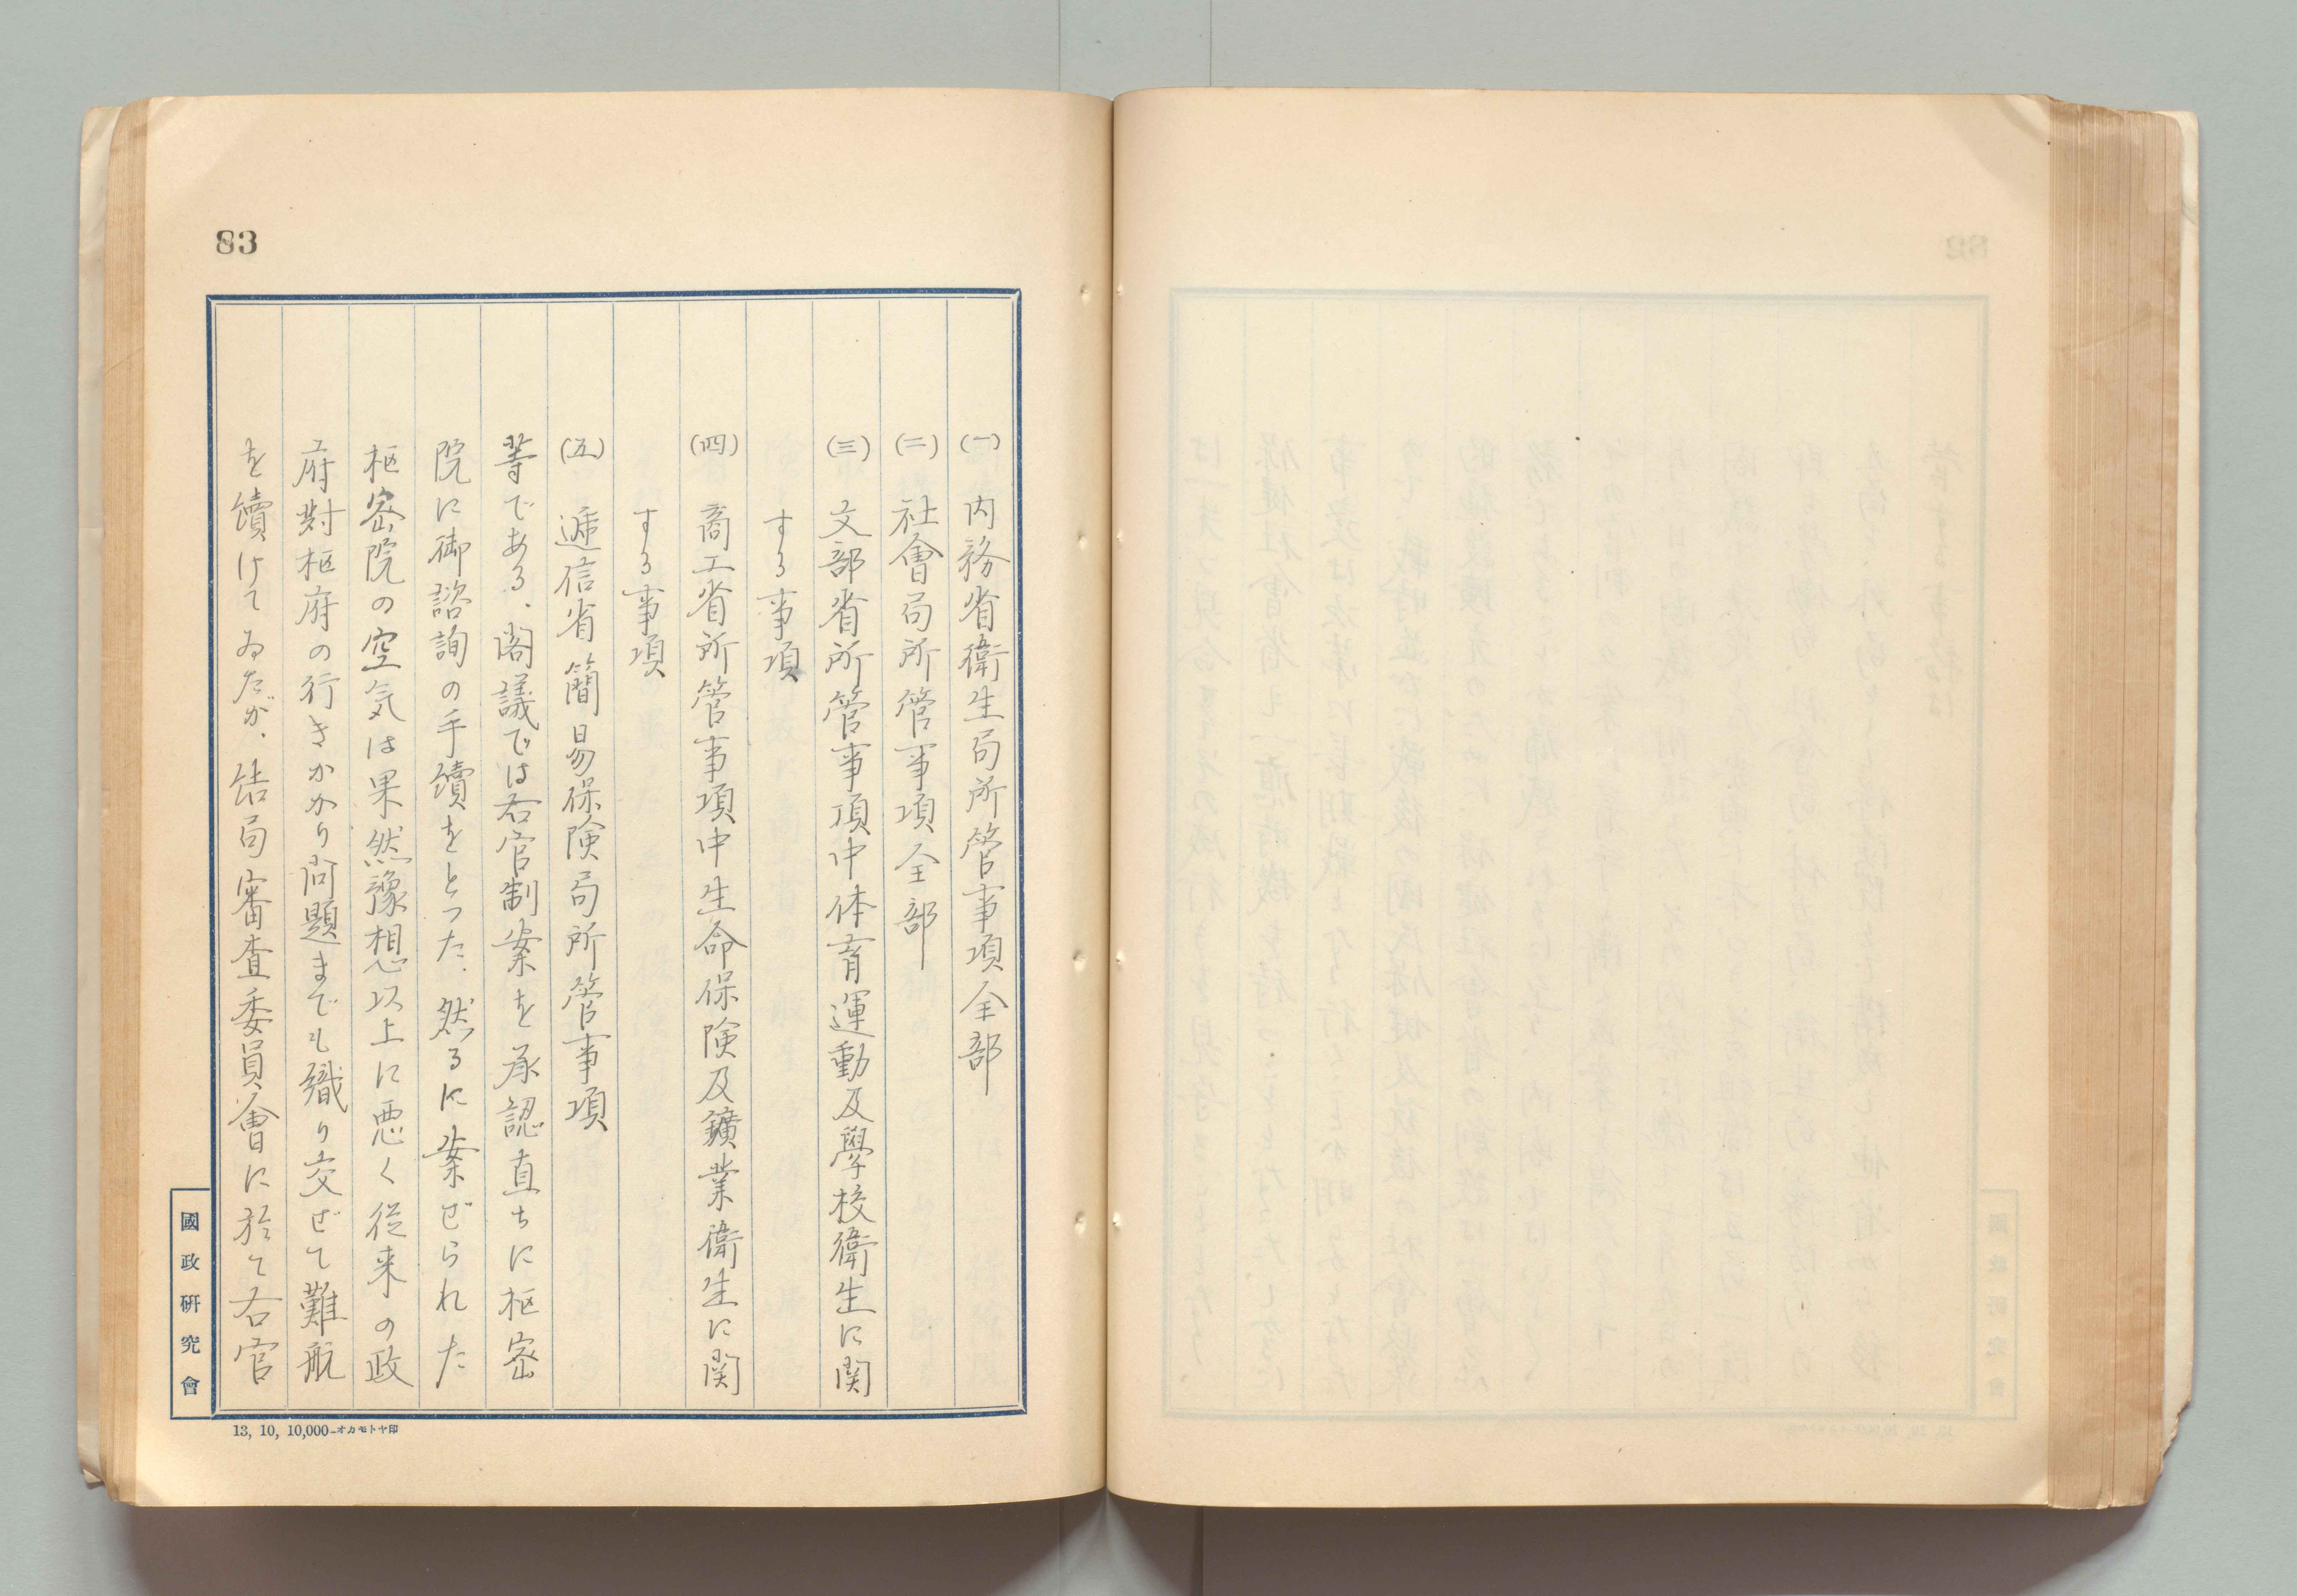 83
(一) 内務省衛生局所管事項全部
(二) 社會局所管事項全部
(三) 文部省所管事項中体育運動及學校衛生に関
する事項
(四) 商工省所管事項中生命保険及鑛業衛生に関
する事項
(五) 逓信省簡易保険局所管事項
等である、閣議では右官制案を承認直ちに枢密
院に御諮詢の手續をとった、然るに案ぜられた
枢密院の空気は果然豫想以上に悪く従来の政
府對枢府の行きかかり問題までも織り交ぜて難航
を續けてゐたが、結局審査委員會に於て右官
國政研究會
13, 10, 10,000-オカモトヤ印